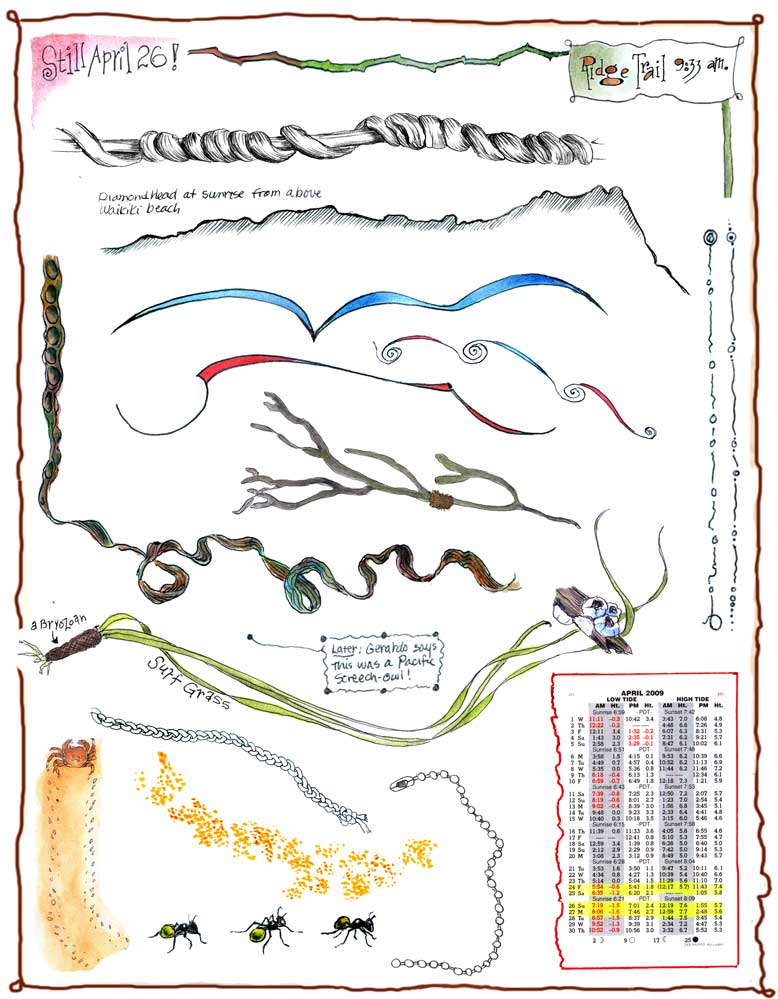 Still April 26!
Ridge Trail 9:33 am.
Diamondhead at sunrise from above
Waikiki beach
a Bryozoan
Surf Grass
Later: Gerardo says
this was a Pacific
Screech-owl!
APRIL 2009
LOW TIDE HIGH TIDE
AM Ht. PM Ht. AM Ht. PM Ht.
Sunrise 6:59 -PDT- Sunset 7:42
1 W 11:11 -0.3 10:42 3.4 3:43 7.0 6:08 4.8
2 Th 12:22 -0.2 ---- ---- 4:48 6.6 7:26 4.9
3 F 12:11 3.4 1:32 -0.2 6:07 6.3 8:31 5.3
4 Sa 1:43 3.0 2:35 -0.1 7:31 6.2 9:21 5.7
5 Su 2:58 2.3 3:29 -0.1 8:47 6.1 10:02 6.1
Sunrise 6:51 -PDT- Sunset 7:48
6 M 3:58 1.5 4:15 0.1 9:53 6.2 10:39 6.6
7 Tu 4:49 0.7 4:57 0.4 10:52 6.2 11:13 6.9
8 W 5:35 0.0 5:36 0.8 11:44 6.2 11:46 7.2
9 Th 6:18 -0.4 6:13 1.3 ---- ---- 12:34 6.1
10 F 6:59 -0.7 6:49 1.8 12:18 7.3 1:21 5.9
Sunrise 6:43 -PDT- Sunset 7:53
11 Sa 7:39 -0.8 7:25 2.3 12:50 7.2 2:07 5.7
12 Su 8:19 -0.6 8:01 2.7 1:23 7.0 2:54 5.4
13 M 9:02 -0.4 8:39 3.0 1:56 6.8 3:45 5.1
14 Tu 9:48 0.0 9:23 3.3 2:33 6.4 4:41 4.8
15 W 10:40 0.3 10:18 3.5 3:15 6.0 5:46 4.6
-PDT- Sunset 7:58
16 Th 11:39 0.6 11:33 3.6 4:05 5.6 6:55 4.6
17 F ---- ---- 12:41 0.8 5:10 5.3 7:55 4.7
18 Sa 12:59 3.4 1:39 0.8 6:26 5.0 8:40 5.0
19 Su 2:12 2.9 2:29 0.9 7:42 5.0 9:14 5.3
20 M 3:08 2.3 3:12 0.9 8:49 5.0 9:43 5.7
Sunrise 6:28 -PDT- Sunset 8:04
21 Tu 3:53 1.6 3:50 1.1 9:47 5.2 10:11 6.1
22 W 4:34 0.8 4:27 1.3 10:39 5.4 10:40 6.6
23 Th 5:14 0.0 5:04 1.5 11:29 5.6 11:10 7.0
24 F 5:54 -0.6 5:41 1.8 (12:17 5.7) 11:43 7.4
25 Sa 6:35 -1.2 6:20 2.1 ---- ---- 1:05 5.8
Sunrise 6:21 -PDT- Sunset 8:09
26 Su 7:19 -1.5 7:01 2.4 12:19 7.6 1:55 5.7
27 M 8:06 -1.6 7:46 2.7 12:59 7.7 2:48 5.6
28 Tu 8:57 -1.5 8:37 2.9 1:44 7.5 3:45 5.4
29 W 9:52 -1.3 9:39 3.1 2:34 7.2 4:47 5.3
30 Th 10:52 -0.9 10:56 3.0 3:32 6.7 5:52 5.3
2 9 17 25